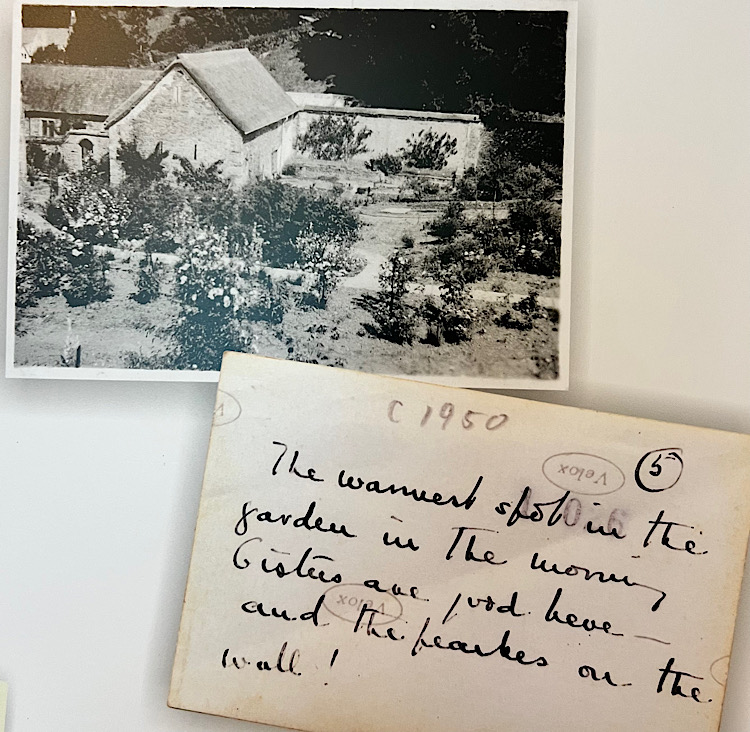 C 1950
5
Velox
The warmest spot in the
garden in the morning
Cistus are good here —
and the peaches on the
Velox
wall!